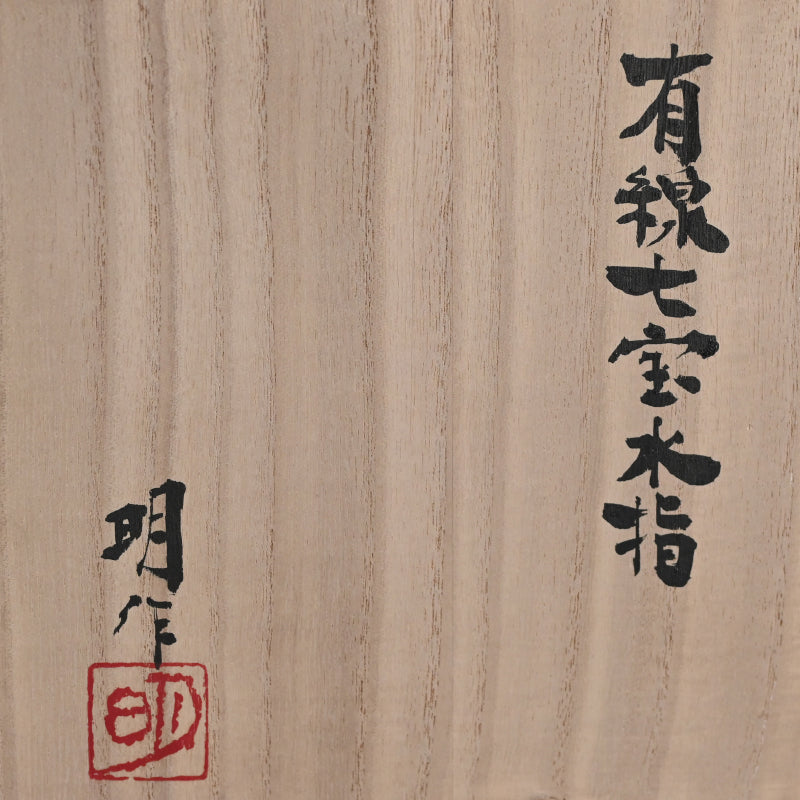 有線七宝水指
明作
明